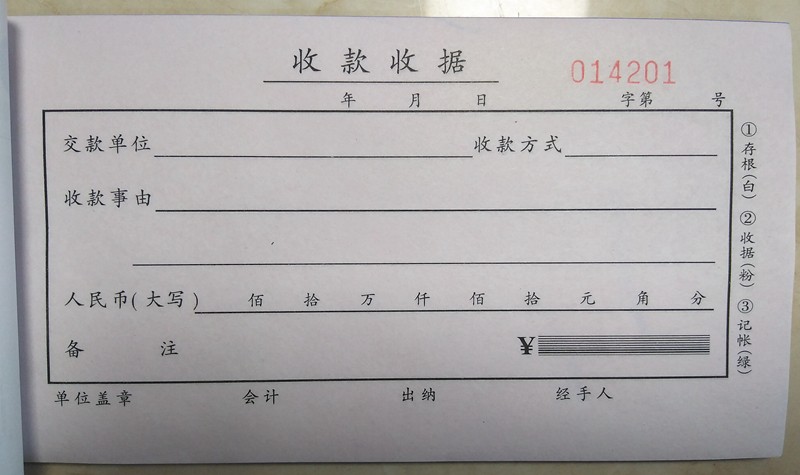 收款收据
014201
年 月 日 字第 号
交款单位 收款方式
收款事由
人民币(大写) 佰 拾 万 仟 佰 拾 元 角 分
备 注 ¥
单位盖章 会计 出纳 经手人
①存根(白) ②收据(粉) ③记帐(绿)